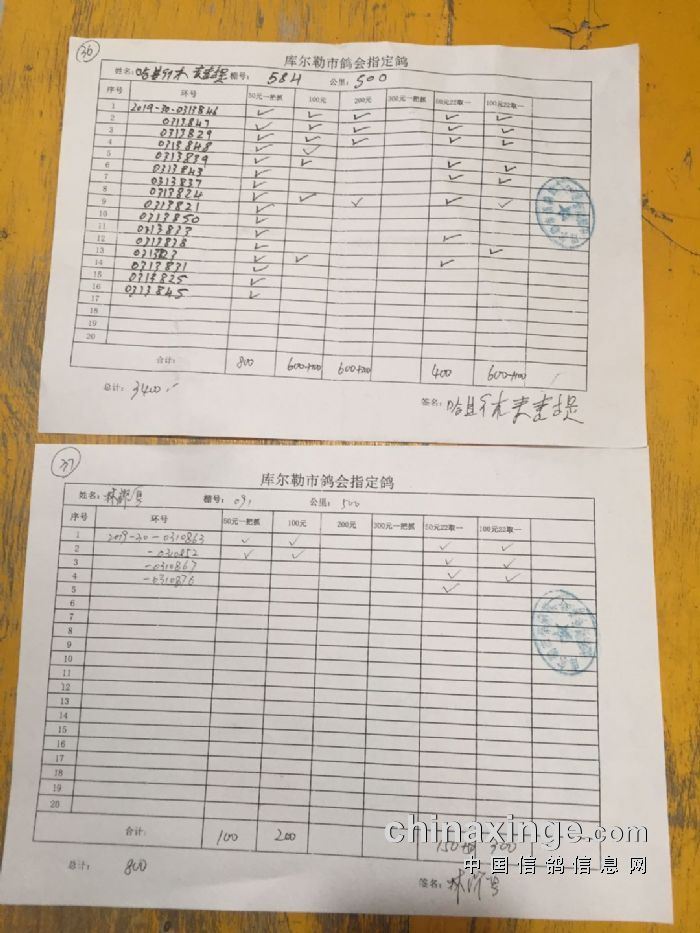 36
库尔勒市鸽会指定鸽
姓名: 棚号: 584 公里: 500
序号 环号 50元一把抓 100元 200元 300元一把抓 50元22取一 100元22取一
1 2019-30-0313846 ✓ ✓ ✓ ✓ ✓
2 0313847 ✓ ✓ ✓ ✓ ✓
3 0313829 ✓ ✓ ✓ ✓ ✓
4 0313848 ✓ ✓
5 0313839 ✓ ✓ ✓ ✓
6 0313843 ✓ ✓ ✓
7 0313837 ✓
8 0313824 ✓ ✓ ✓ ✓
9 0313821 ✓ ✓ ✓
10 0313850 ✓
11 0313833 ✓ ✓
12 0313838 ✓
13 ✓ ✓ ✓
14 0313831 ✓ ✓
15 0313825 ✓
16 0313845 ✓
17
18
19
20
合计: 800 400
总计: 3400 签名:
37
库尔勒市鸽会指定鸽
姓名: 棚号: 公里: 500
序号 环号 50元一把抓 100元 200元 300元一把抓 50元22取一 100元22取一
1 2019-30-0310863 ✓ ✓ ✓ ✓
2 -0310852 ✓ ✓ ✓ ✓
3 -0310867 ✓ ✓
4 -0310876 ✓
5
6
7
8
9
10
11
12
13
14
15
16
17
18
19
20
合计: 100 200 300
总计: 800 签名:
chinaxinge.com
中国信鸽信息网